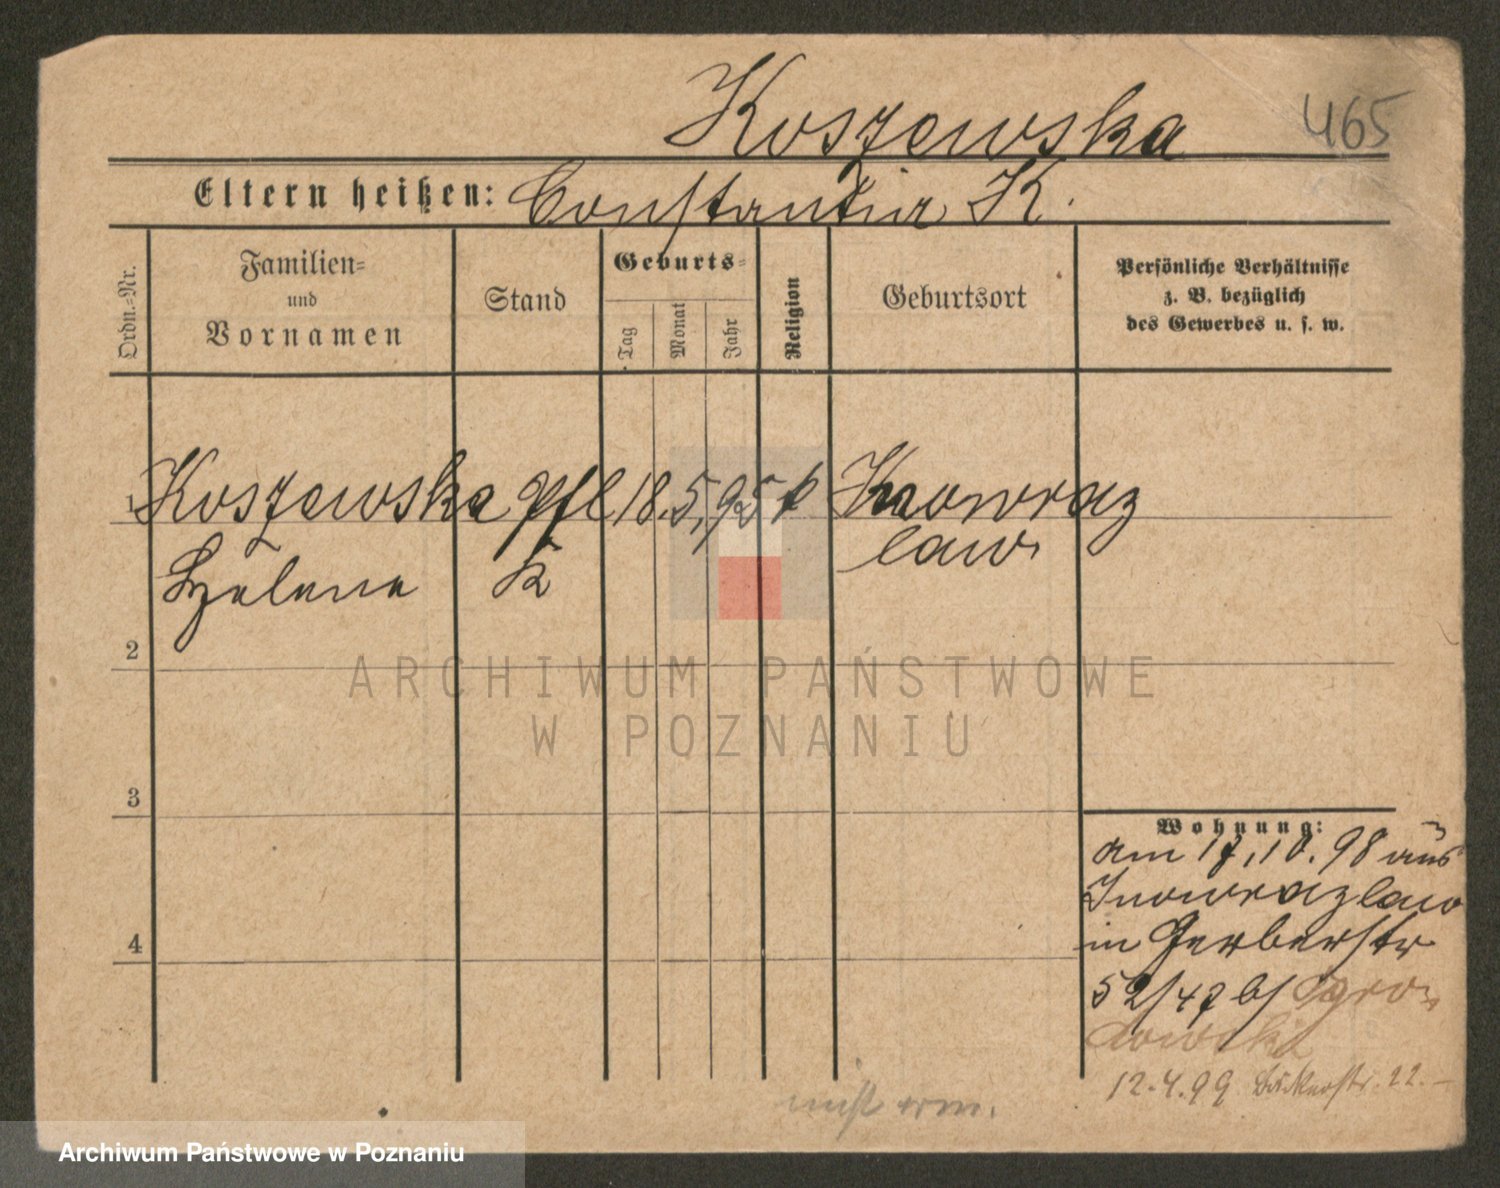 Koszewska
465
Eltern heißen: Constantin K.
Ordn.-Nr.
Familien-
und
Vornamen
Stand
Geburts-
Tag
Monat
Jahr
Religion
Geburtsort
Persönliche Verhältnisse
z. B. bezüglich
des Gewerbes u. s. w.
1 Koszewska Pfl 18. 5. 95 k Inowraz
law
Helene K
2
3
4
Wohnung:
am 17.10.98 aus
Inowrazlaw
in Gerberstr
52/47 b/ Gro-
dowski
12.4.99 Bäckerstr. 22. –
ARCHIWUM PAŃSTWOWE
W POZNANIU
Archiwum Państwowe w Poznaniu